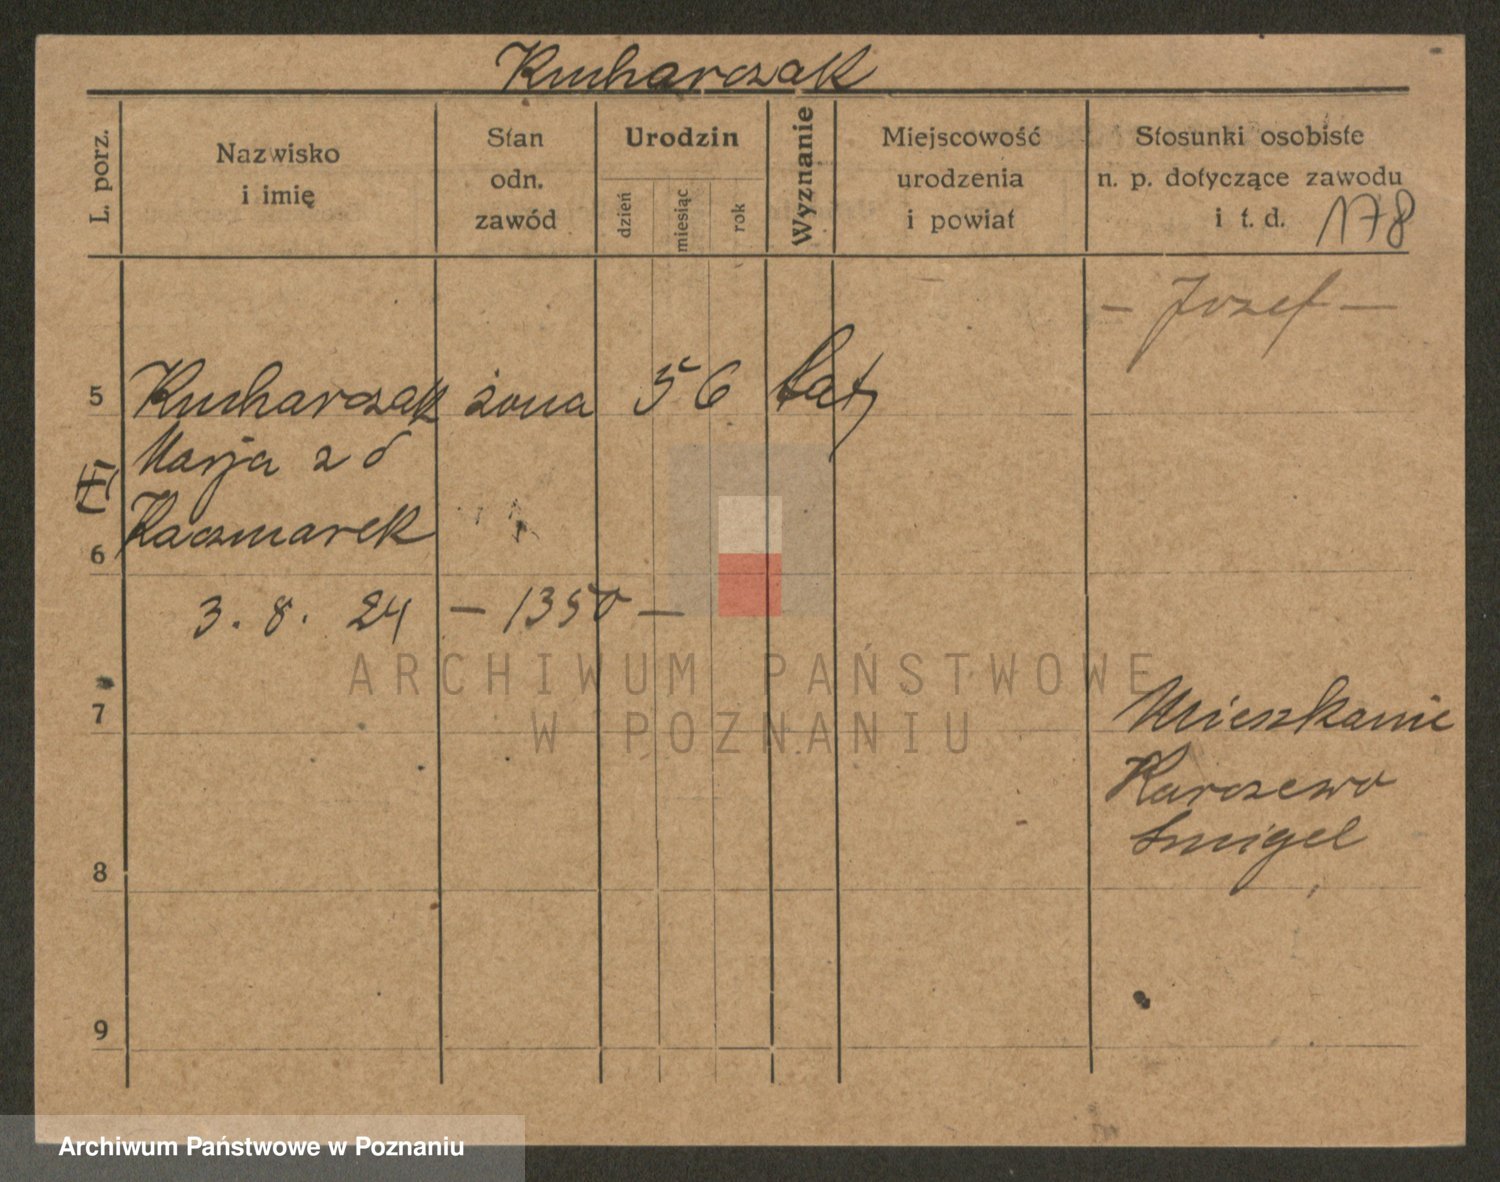 Kucharczak
L. porz.
Nazwisko
i imię
Stan
odn.
zawód
Urodzin
dzień
miesiąc
rok
Wyznanie
Miejscowość
urodzenia
i powiat
Stosunki osobiste
n. p. dotyczące zawodu
i t. d. 178
- Jozef -
5 Kucharczak żona 56 lat
Marja z d
Kaczmarek
6
3. 8. 24 - 1350 -
ARCHIWUM PAŃSTWOWE
W POZNANIU
7
Mieszkanie
Karczewo
Smigel
8
9
Archiwum Państwowe w Poznaniu